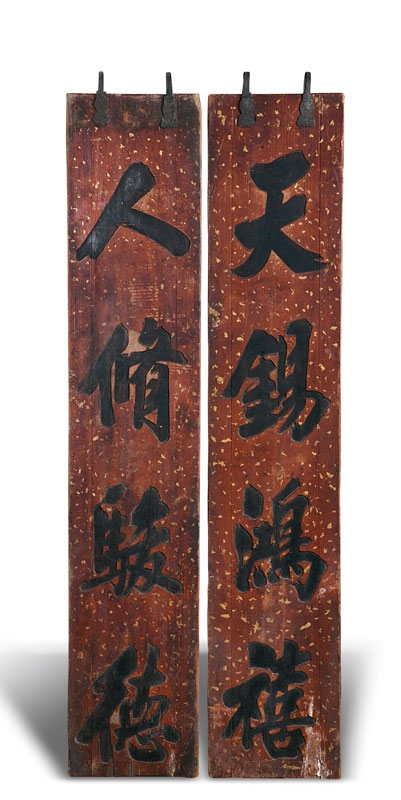 天錫鴻禧
人脩駿德